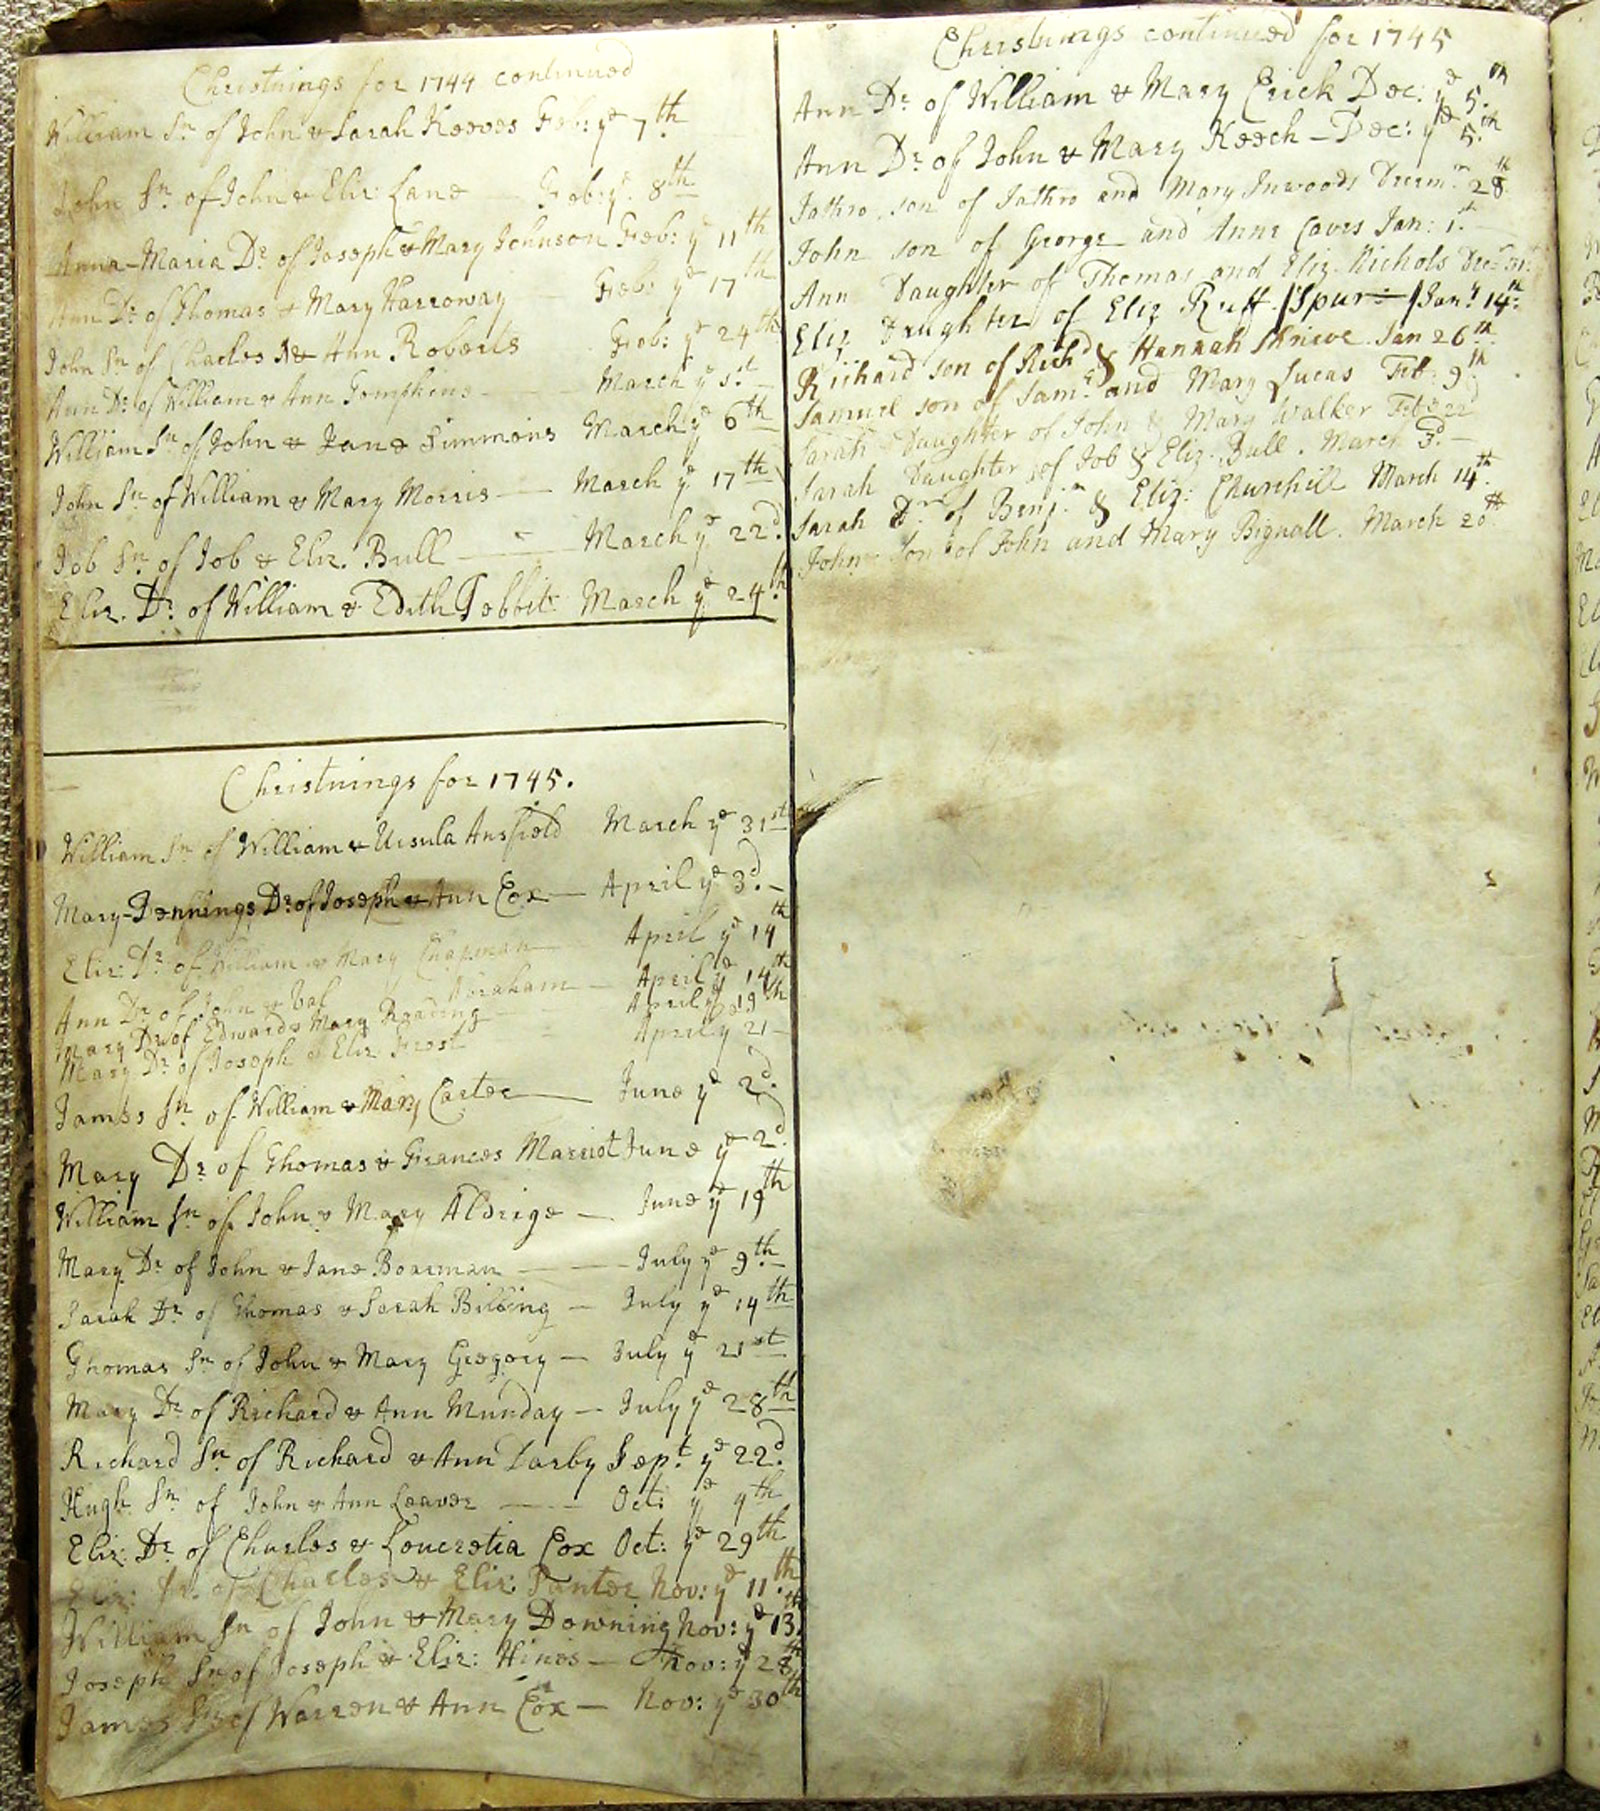 Christnings for 1744 continued
William Sn of John & Sarah Keeves Feb: ye 7th
John Sn of John & Eliz Lane Feb: ye 8th
Anna-Maria Dr of Joseph & Mary Johnson Feb: ye 11th
Ann Dr of Thomas & Mary Harroway Feb: ye 17th
John Sn of Charles & Ann Roberts Feb: ye 24th
Ann Dr of William & Ann Tompkins March ye 1st
William Sn of John & Jane Simmons March ye 6th
John Sn of William & Mary Morris March ye 17th
Job Sn of Job & Eliz. Bull March ye 22d
Eliz. Dr of William & Edith Tebbit March ye 24th
Christnings for 1745.
William Sn of William & Ursula Ansfield March ye 31st
Mary-Jennings Dr of Joseph & Ann Cox April ye 3d
Eliz: Dr of William & Mary Chapman April ye 14th
Ann Dr of John & Abraham April ye 14th
Mary Dr of Edward & Mary Reading April ye 19th
Mary Dr of Joseph & Eliz Frost April ye 21
James Sn of William & Mary Carter June ye 2d
Mary Dr of Thomas & Frances Marriot June ye 2d
William Sn of John & Mary Aldrige June ye 19th
Mary Dr of John & Jane Boarman July ye 9th
Sarah Dr of Thomas & Sarah Billing July ye 14th
Thomas Sn of John & Mary Gregory July ye 21st
Mary Dr of Richard & Ann Munday July ye 28th
Richard Sn of Richard & Ann Darby Sept. ye 22d
Hugh Sn of John & Ann Leaver Oct: ye 9th
Eliz: Dr of Charles & Loucretia Cox Oct: ye 29th
Eliz: Dr of Charles & Eliz: Panter Nov: ye 11th
William Sn of John & Mary Downing Nov: ye 13th
Joseph Sn of Joseph & Eliz: Hines Nov: ye 28th
James Sn of Warren & Ann Cox Nov: ye 30th
Christnings continued for 1745
Ann Dr of William & Mary Erick Dec: ye 5th
Ann Dr of John & Mary Keech Dec: ye 5th
Jathro son of Jathro and Mary Inwoods Decemr 28th
John son of George and Anne Caves Jan: 1st
Ann Daughter of Thomas and Eliz. Nichols Decr 31st
Eliz Daughter of Eliz Ruff /Spur:/ Jany 14th
Richard son of Richd & Hannah Shrieve Jan 26th
Samuel son of Saml and Mary Lucas Feb 9th
Sarah Daughter of John & Mary Walker Feb 22
Sarah Daughter of Job & Eliz. Bull. March 3d
Sarah Dr of Benjn & Eliz: Churchill March 14th
John Son of John and Mary Bignall. March 20th